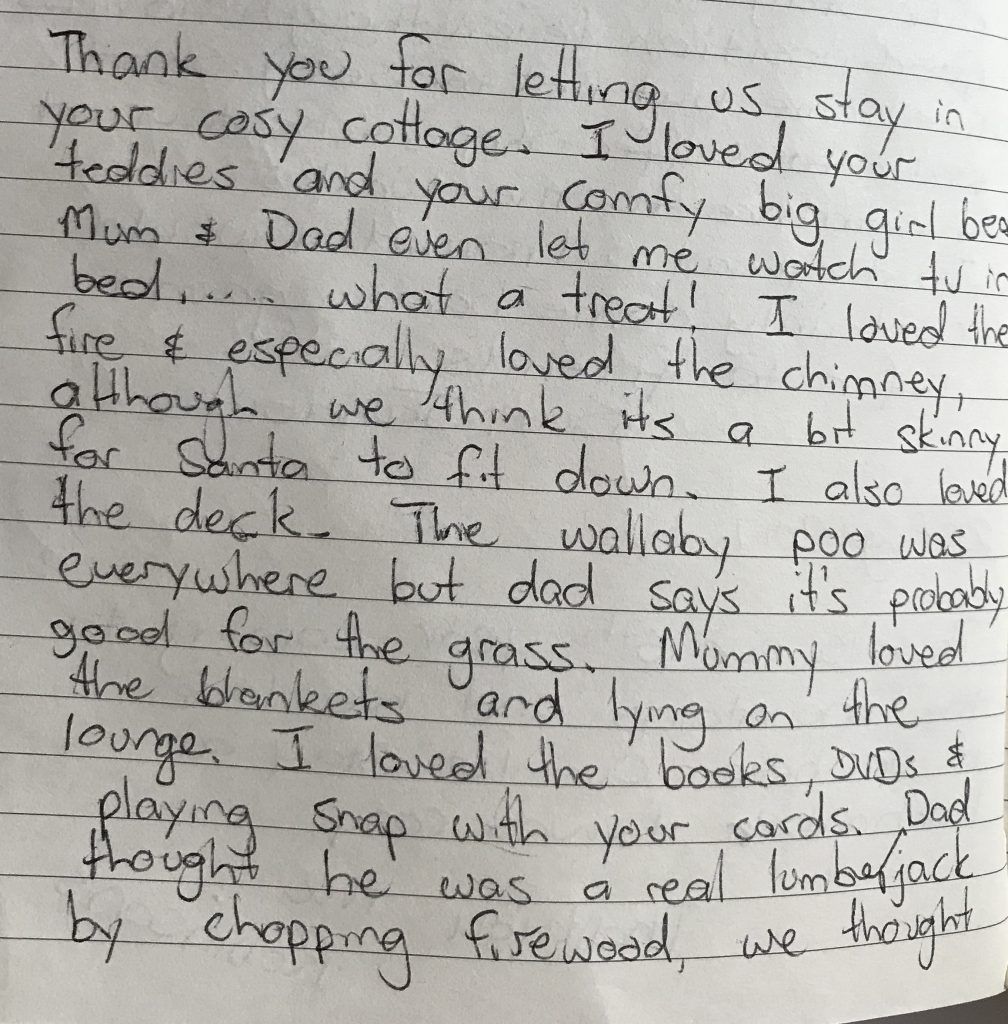 Thank you for letting us stay in
your cosy cottage. I loved your
teddies and your comfy big girl bed
Mum & Dad even let me watch tv in
bed..... what a treat! I loved the
fire & especially loved the chimney,
although we think its a bit skinny
for Santa to fit down. I also loved
the deck. The wallaby poo was
everywhere but dad says it's probably
good for the grass. Mummy loved
the blankets and lying on the
lounge. I loved the books, DVDs &
playing snap with your cards. Dad
thought he was a real lumberjack
by chopping firewood, we thought